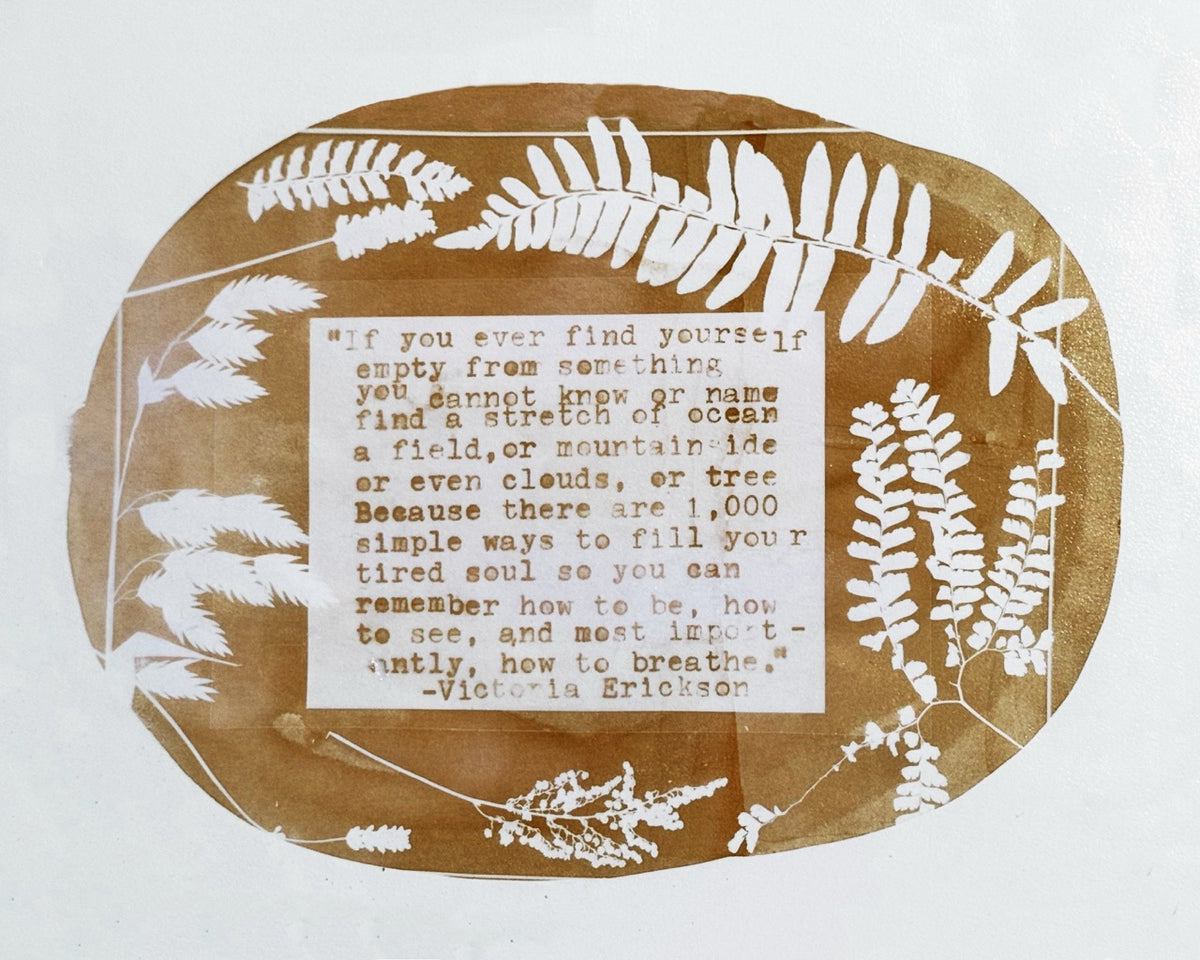 "If you ever find yourself
empty from something
you cannot know or name
find a stretch of ocean
a field,or mountainside
or even clouds, or tree
Because there are 1,000
simple ways to fill your
tired soul so you can
remember how to be, how
to see, and most import-
antly, how to breathe."
-Victoria Erickson